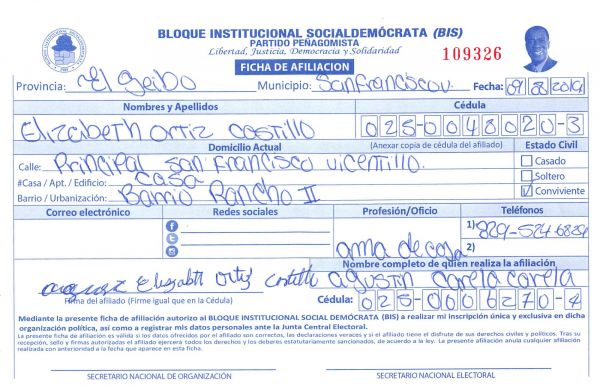 BLOQUE INSTITUCIONAL SOCIALDEMÓCRATA (BIS)
PARTIDO PEÑAGOMISTA
Libertad, Justicia, Democracia y Solidaridad
FICHA DE AFILIACION
109326
Provincia: El Seibo Municipio: San Francisco v. Fecha:
Nombres y Apellidos Cédula
Elizabeth Ortiz Castillo 025-0048020-3
Domicilio Actual (Anexar copia de cédula del afiliado) Estado Civil
Calle: Principal San Francisco Vicentillo. Casado
#Casa / Apt. / Edificio: Casa Soltero
Barrio / Urbanización: Barrio Rancho II Conviviente
Correo electrónico Redes sociales Profesión/Oficio Teléfonos
1) 829-524-6829
ama de casa 2)
Nombre completo de quien realiza la afiliación
Elizabeth Ortiz Castillo agustin Carela Carela
Firma del afiliado (Firme igual que en la Cédula) Cédula: 025-0006270-4
Mediante la presente ficha de afiliación autorizo al BLOQUE INSTITUCIONAL SOCIAL DEMÓCRATA (BIS) a realizar mi inscripción única y exclusiva en dicha
organización política, así como a registrar mis datos personales ante la Junta Central Electoral.
La presente ficha de afiliación es válida si los datos ofrecidos por el afiliado son correctos, las declaraciones veraces y si el afiliado tiene el disfrute de sus derechos civiles y políticos. Tras su
recepción, sello y firmas autorizadas el afiliado ejercerá todos los derechos y los deberes estatutariamente sancionados, de acuerdo a la ley. La presente afiliación anula cualquier afiliación
realizada con anterioridad a la fecha que aparece en esta ficha.
SECRETARIO NACIONAL DE ORGANIZACIÓN SECRETARIO NACIONAL ELECTORAL